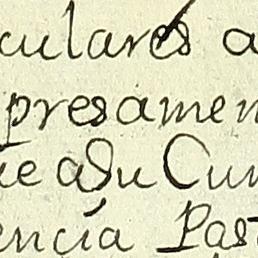 culares a
presamen
ue aSu Cum
encia Past